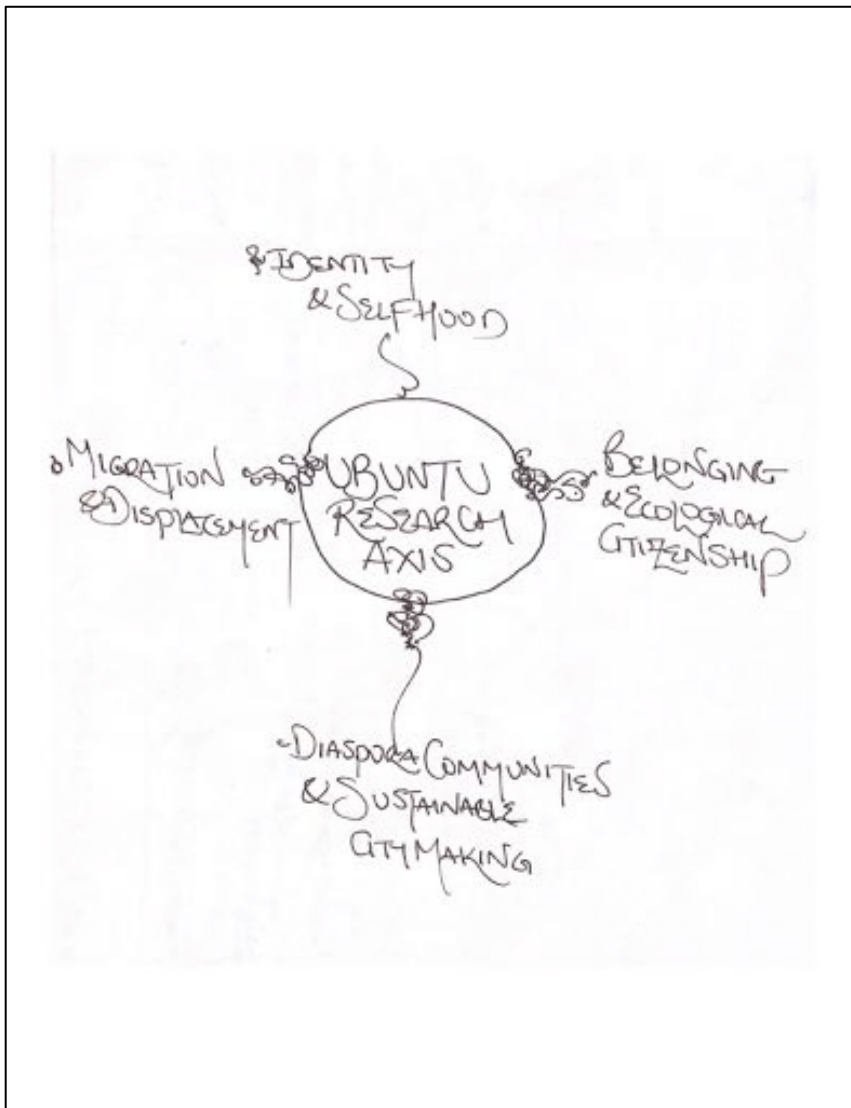 IDENTITY
& SELFHOOD
MIGRATION
& DISPLACEMENT
UBUNTU
RESEARCH
AXIS
BELONGING
& ECOLOGICAL
CITIZENSHIP
DIASPORA COMMUNITIES
& SUSTAINABLE
CITY MAKING